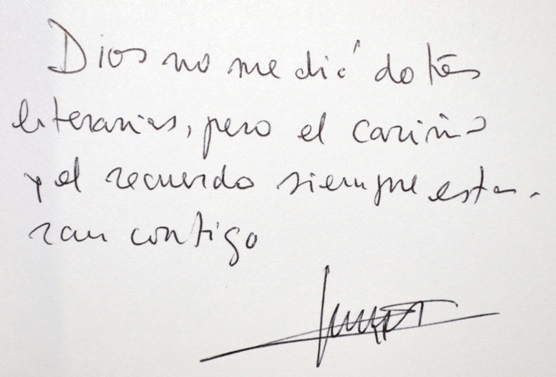 Dios no me dió dotes
literarias, pero el cariño
y el recuerdo siempre esta-
ran contigo